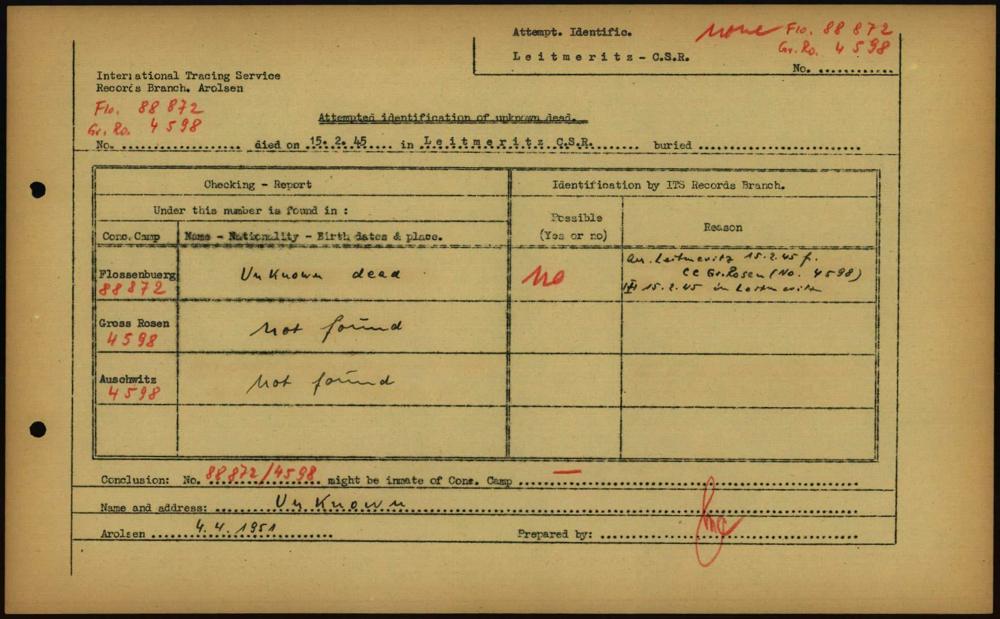 Attempt. Identific.
none Flo. 88 872
Gr. Ro. 4598
Leitmeritz - C.S.R.
No. ............
International Tracing Service
Records Branch. Arolsen
Flo. 88 872
Gr. Ro. 4598
Attempted identification of unknown dead.
No. .................. died on 15. 2. 45 .... in Leitmeritz C.S.R. ....... buried ........................
Checking - Report
Identification by ITS Records Branch.
Under this number is found in :
Possible
(Yes or no)
Reason
Conc. Camp
Name - Nationality - Birth dates & place.
Flossenbuerg
88872
Unknown dead
no
Leitmeritz 15.2.45 f.
CC Gr. Rosen (No. 4598)
15.2.45 in Leitmeritz
Gross Rosen
4598
not found
Auschwitz
4598
not found
Conclusion: No. 88872/4598 might be inmate of Conc. Camp — ........................
Name and address: Unknown
Arolsen 4. 4. 1951
Prepared by: ........................